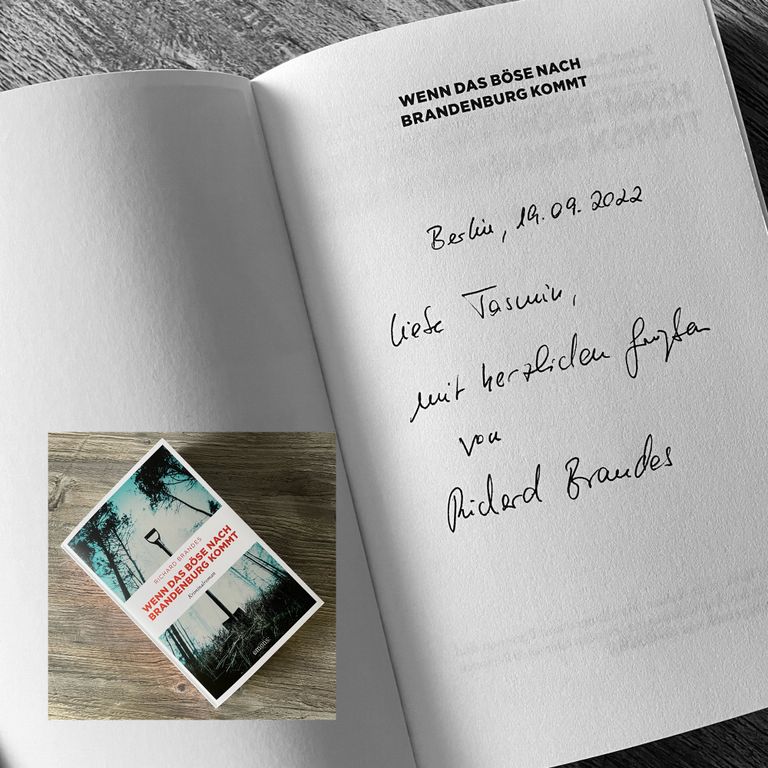 WENN DAS BÖSE NACH
BRANDENBURG KOMMT
Berlin, 19.09.2022
liebe Tasmin,
mit herzlichen Grüßen
von
Richard Brandes
RICHARD BRANDES
WENN DAS BÖSE NACH
BRANDENBURG KOMMT
Kriminalroman
emons: